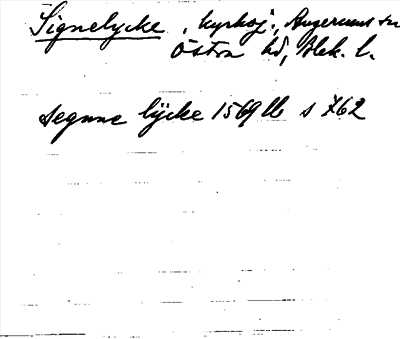 Signelycke, kyrkoj., Augerums sn
Östra hd, Blek. l.
segnne lÿcke 1569 lb s 762